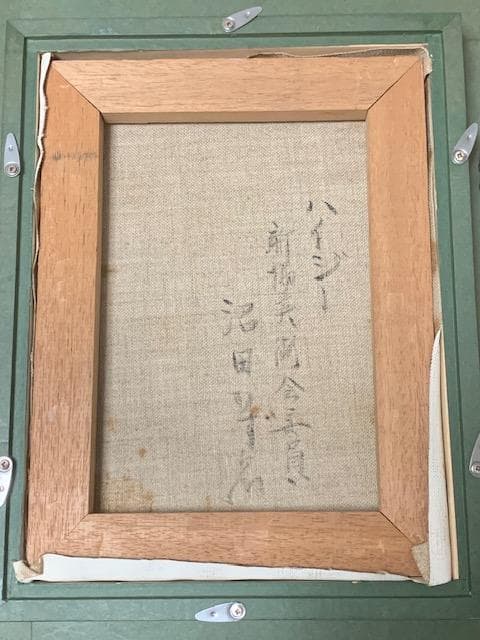 ハイジー
新協美術会委員
沼田